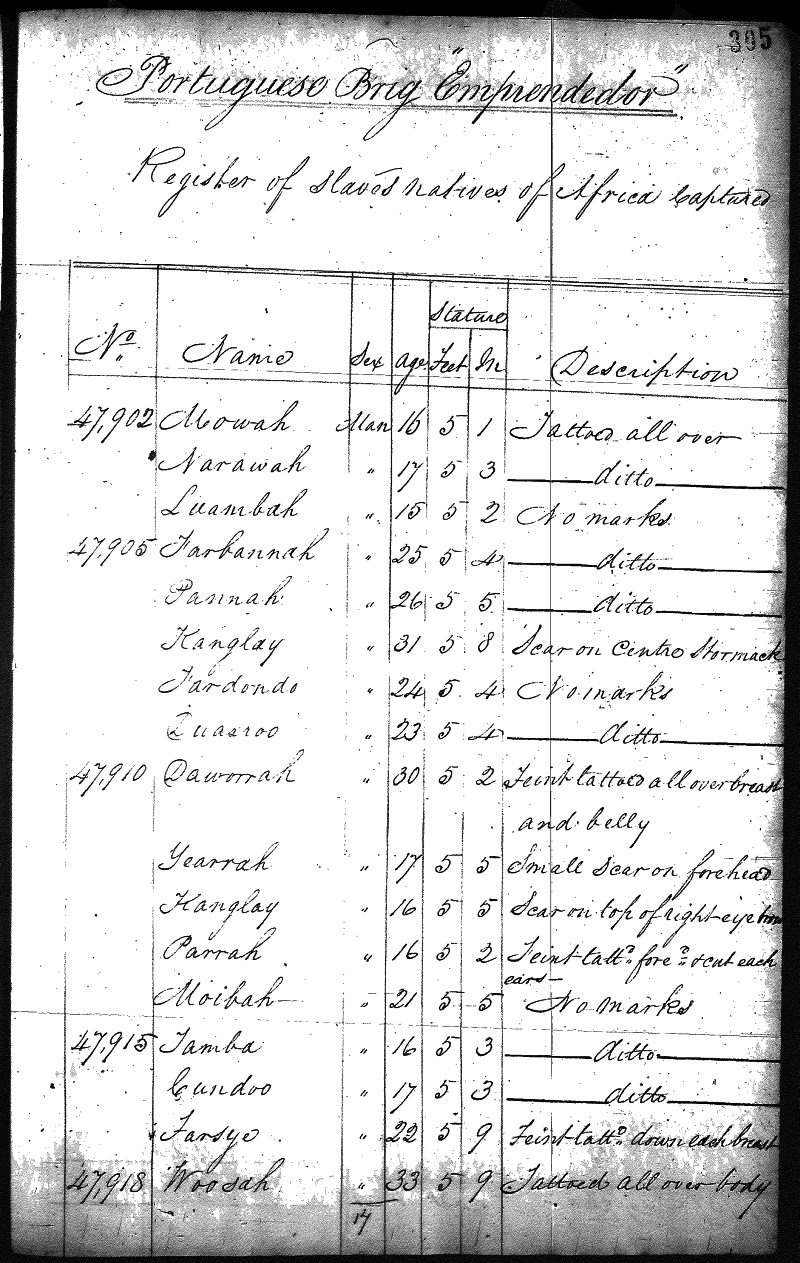 305
Portugueso Brig "Emprendedor"
Register of Slaves natives of Africa Captured
Stature
No. Name Sex Age Feet In Description
47,902 Mowah Man 16 5 1 Tattoed all over
Narawah " 17 5 3 ditto
Luambah " 15 5 2 No marks
47,905 Farbannah " 25 5 4 ditto
Pannah " 26 5 5 ditto
Kanglay " 31 5 8 Scar on Centre Stormack
Fardondo " 24 5 4 No marks
Quasroo " 23 5 4 ditto
47,910 Daworrah " 30 5 2 Feint tattoed all over breast
and belly
Yearrah " 17 5 5 Small Scar on forehead
Kanglay " 16 5 5 Scar on top of right eye brow
Parrah " 16 5 2 Feint tattd. fored. & cut each
ears
Moibah " 21 5 5 No marks
47,915 Jamba " 16 5 3 ditto
Cundoo " 17 5 3 ditto
Farsye " 22 5 9 Feint tattd. down each breast
47,918 Woosah " 33 5 9 Tattoed all over body
17